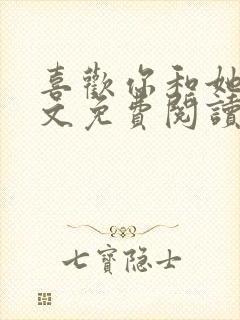 喜歡你和她
文免費閱讀
七寶隐士